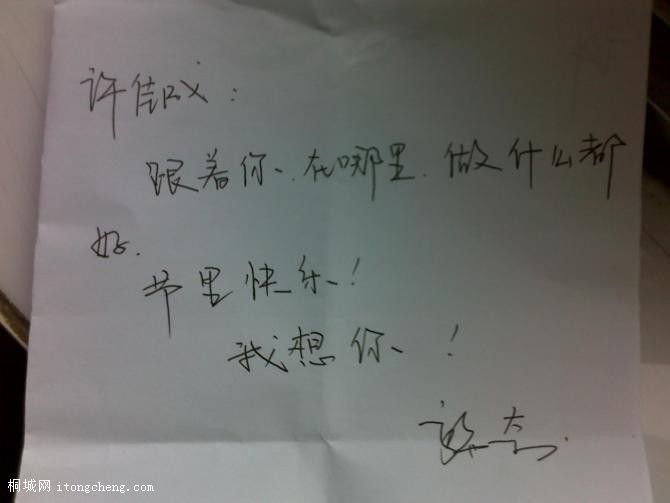 许佳成：
跟着你、在哪里、做什么都
好.
节里快乐！
我想你、！
桐城网 itongcheng.com